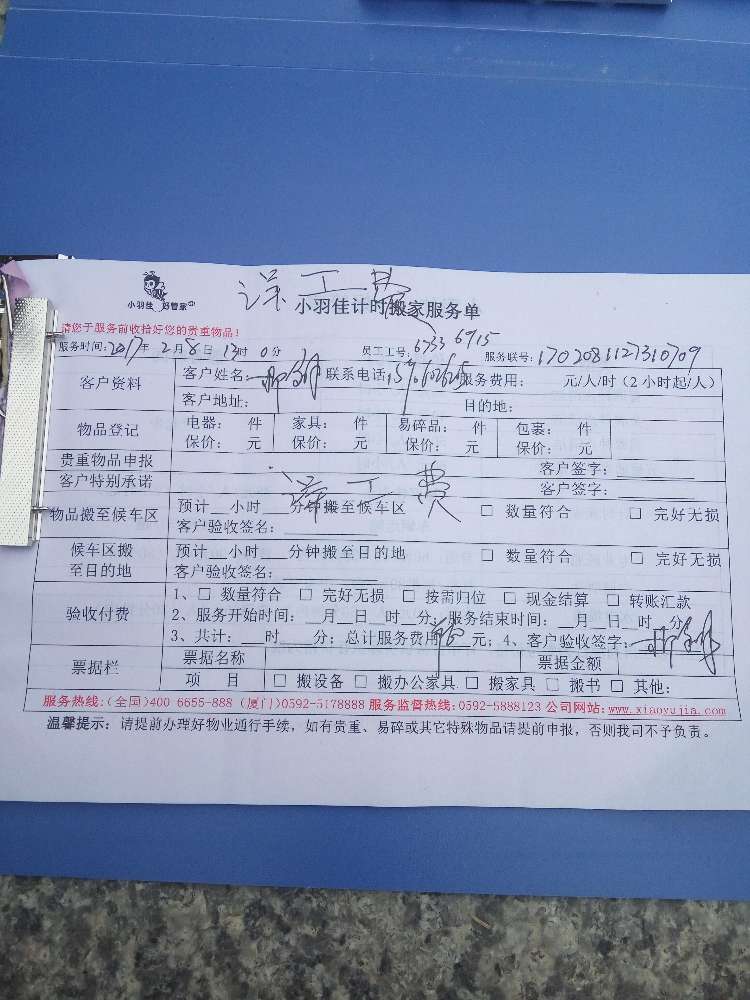 误工费
小羽佳 好管家
小羽佳计时搬家服务单
请您于服务前收拾好您的贵重物品!
服务时间:2017年2月8日13时0分 员工工号:6733 6915 服务联号:1702081127310709
客户资料 客户姓名: 联系电话: 服务费用: 元/人/时(2小时起/人)
客户地址: 目的地:
物品登记 电器: 件 家具: 件 易碎品: 件 包裹: 件
保价: 元 保价: 元 保价: 元 保价: 元
贵重物品申报 客户签字:
客户特别承诺 客户签字:
误工费
物品搬至候车区 预计__小时__分钟搬至候车区 □ 数量符合 □ 完好无损
客户验收签名:
候车区搬至目的地 预计__小时__分钟搬至目的地 □ 数量符合 □ 完好无损
客户验收签名:
验收付费 1、□ 数量符合 □ 完好无损 □ 按需归位 □ 现金结算 □ 转账汇款
2、服务开始时间:__月__日__时__分;服务结束时间:__月__日__时__分
3、共计:__时__分;总计服务费用 元;4、客户验收签字:
票据栏 票据名称 票据金额
项 目 □ 搬设备 □ 搬办公家具 □ 搬家具 □ 搬书 □ 其他:
服务热线:(全国)400 6655-888 (厦门)0592-5178888 服务监督热线:0592-5888123 公司网站:www.xiaoyujia.com
温馨提示:请提前办理好物业通行手续,如有贵重、易碎或其它特殊物品请提前申报,否则我司不予负责。